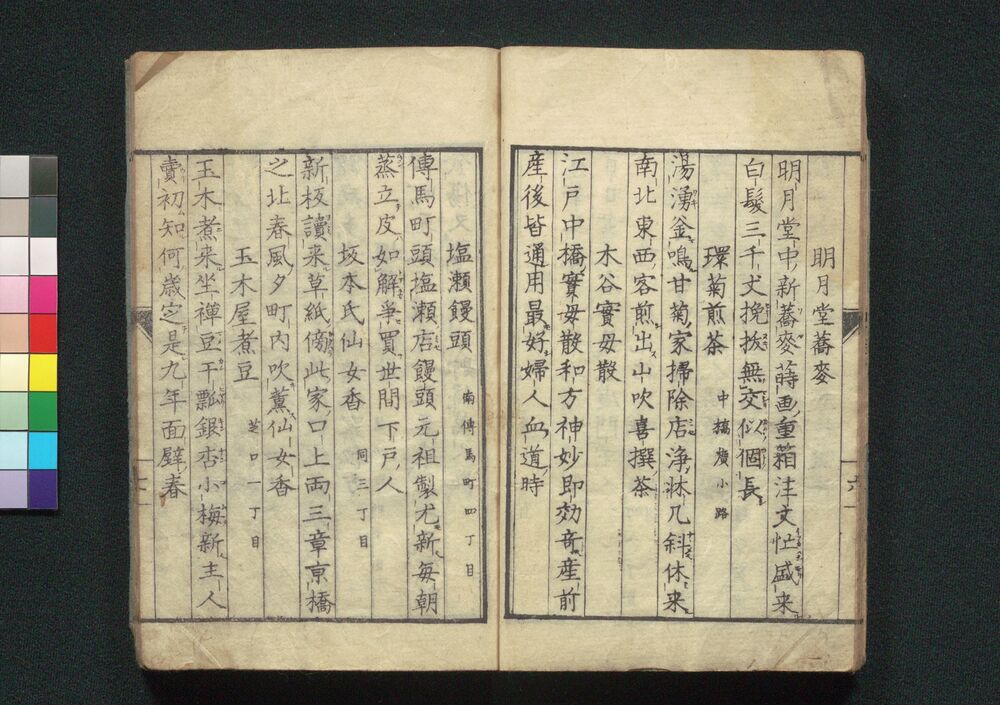 明月堂蕎麥
明月堂中新蕎麥蒔画重箱注文忙盛来
白髮三千丈挽抜無交似個長
環菊煎茶 中橋廣小路
湯湧釜鳴甘菊家掃除店浄牀几斜休来
南北東西客煎出山吹喜撰茶
木谷實母散
江戸中橋實母散和方神妙即効竒産前
産後皆通用最好婦人血道時
塩瀬饅頭 南傳馬町四丁目
傳馬町頭塩瀬店饅頭元祖製尤新毎朝
蒸立皮如解爭買世間下戸人
坂本氏仙女香 同三丁目
新板讀来草紙傍此家口上両三章京橋
之北春風夕町内吹薫仙女香
玉木屋煮豆 芝口一丁目
玉木煮来坐禅豆干瓢銀杏小梅新主人
賣初知何歳定是九年面壁春
六